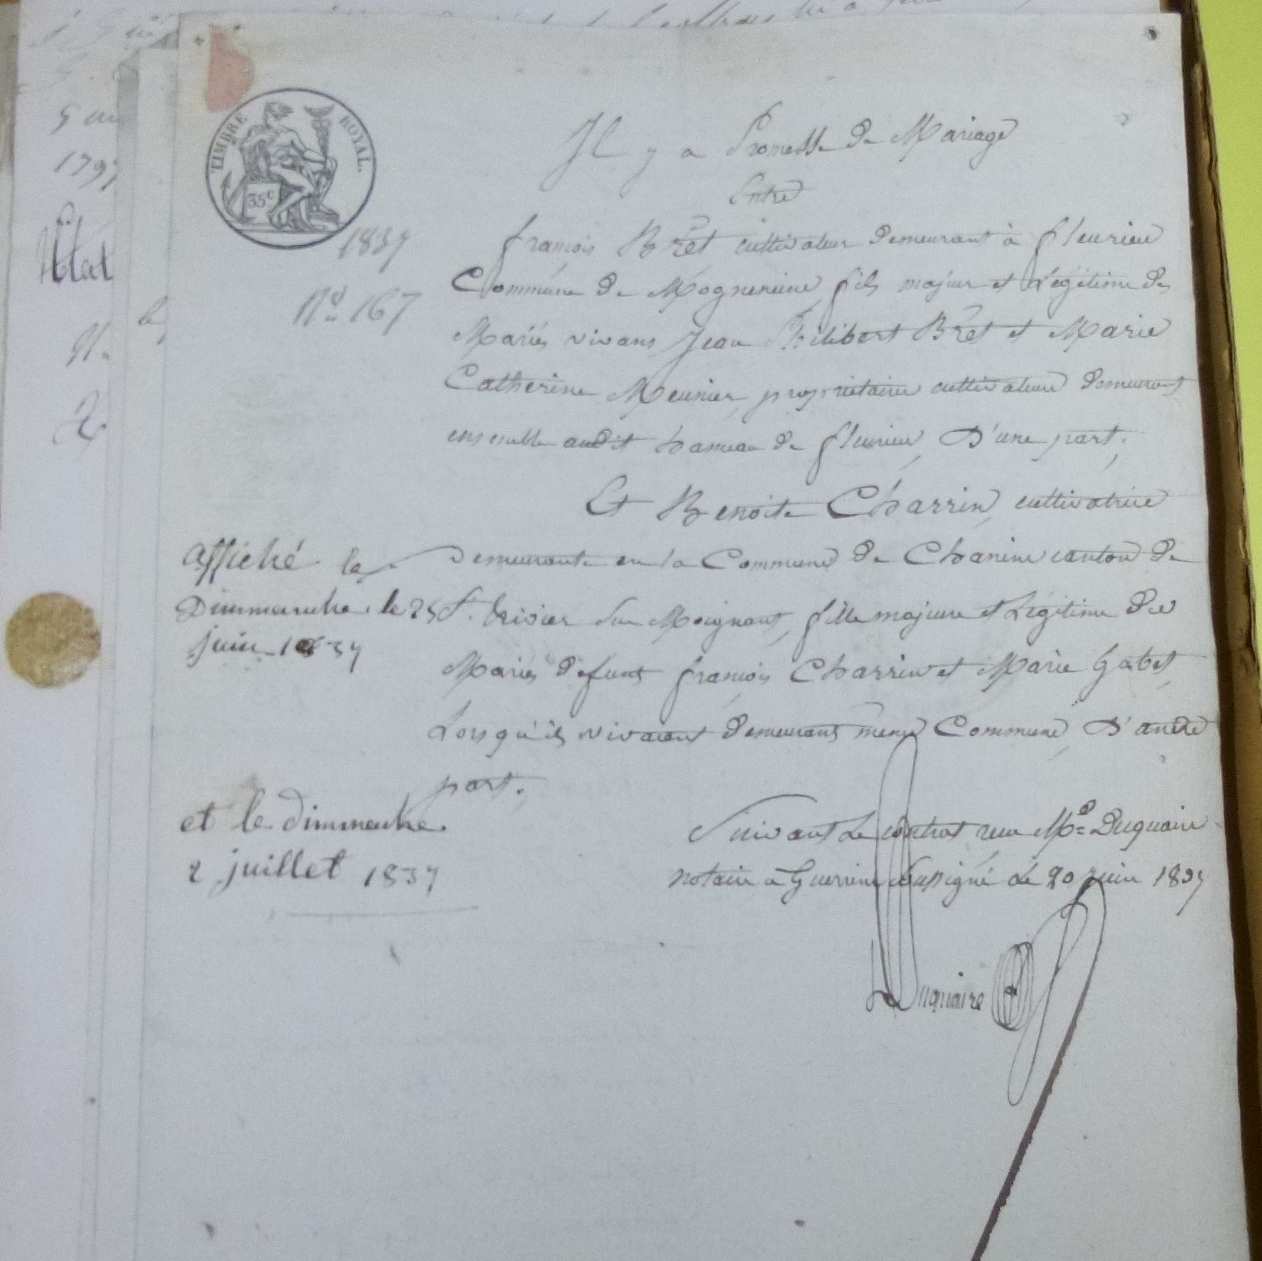 TIMBRE ROYAL.
35c
1837
N° 167
Il y a Promesse de Mariage
Entre
françois Brêt cultivateur demeurant à fleurieu
Commune de Mogneneins, fils majeur et Légitime des
Mariés vivans Jean Philibert Brêt et Marie
Catherine Meunier, propriétaires cultivateurs demeurant
ensemble audit hameau de fleurieu, D'une part;
Et Benoite Charrin, cultivatrice
demeurante en la Commune de Chaneins canton de
St. Trivier Sur Moignans, fille majeure et Légitime des
Mariés défunts françois Charrin et Marie Gabet,
Lorsqu'ils vivaient demeurans même Commune, D'autre
part.
Suivant le contrat reçu Me Duquaire
notaire à Guerreins soussigné le 20 juin 1837
Duquaire
affiché le
Dimmanche le 25
juin 1837
et le dimmanche
2 juillet 1837
1797
Etat